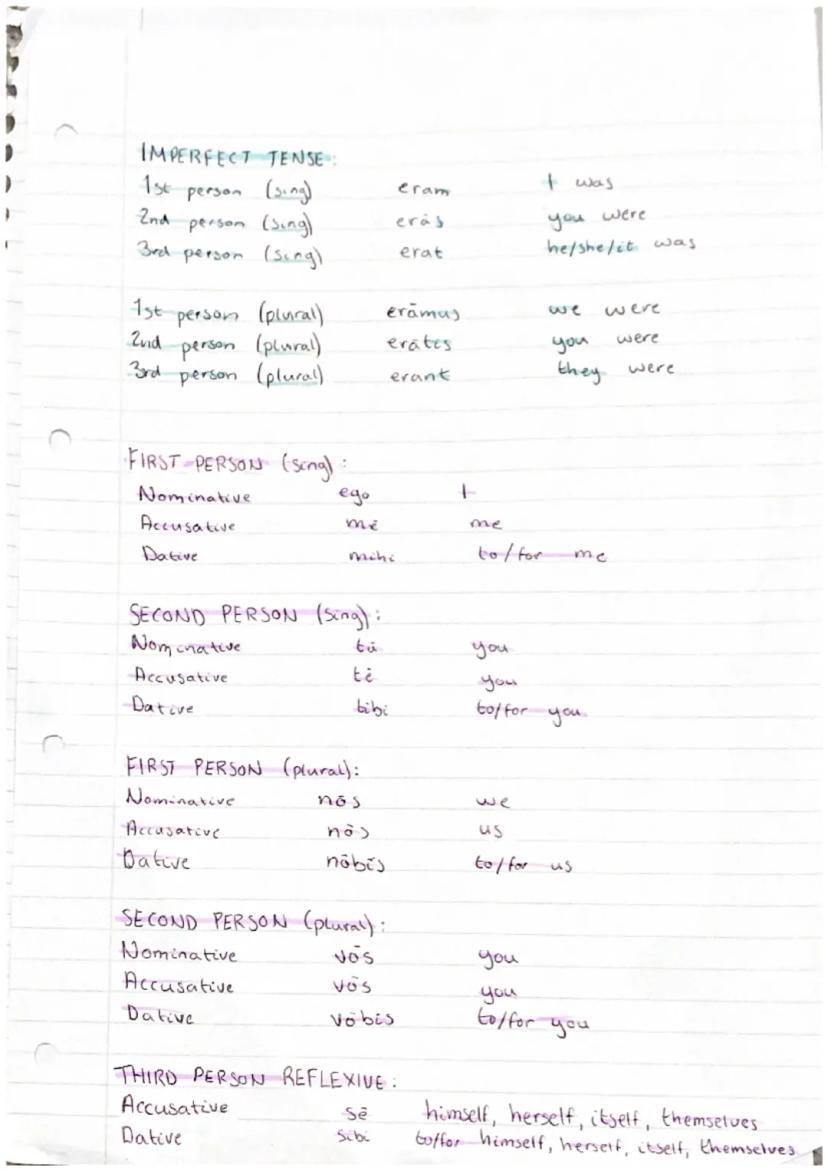 IMPERFECT TENSE:
1st person (sing) eram I was
2nd person (sing) erās you were
3rd person (sing) erat he/she/it was
1st person (plural) erāmus we were
2nd person (plural) erātis you were
3rd person (plural) erant they were
FIRST PERSON (sing):
Nominative ego I
Accusative mē me
Dative mihi to/for me
SECOND PERSON (sing):
Nominative tū you
Accusative tē you
Dative tibi to/for you
FIRST PERSON (plural):
Nominative nōs we
Accusative nōs us
Dative nōbīs to/for us
SECOND PERSON (plural):
Nominative vōs you
Accusative vōs you
Dative vōbīs to/for you
THIRD PERSON REFLEXIVE:
Accusative sē himself, herself, itself, themselves
Dative sibi to/for himself, herself, itself, themselves